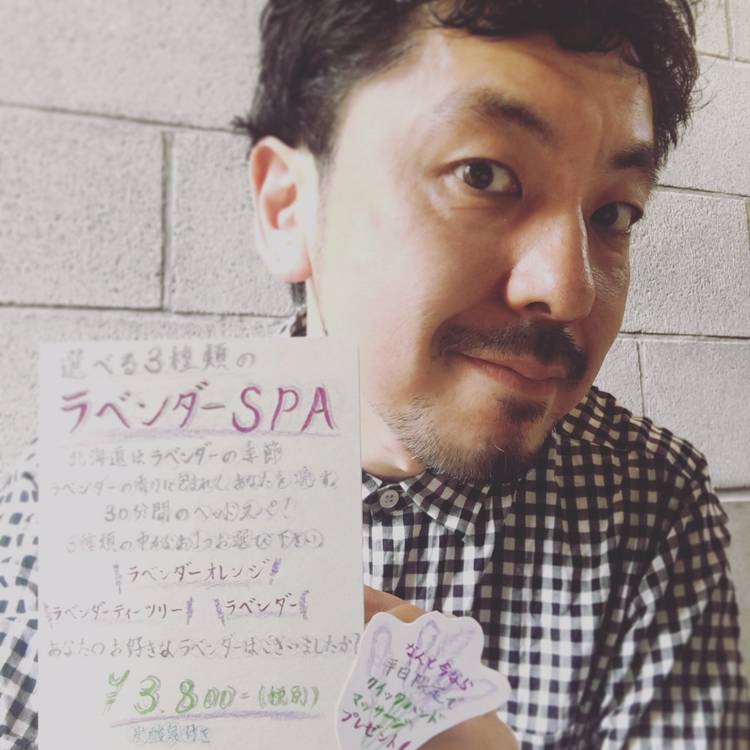 選べる3種類の
ラベンダーSPA
北海道はラベンダーの季節
ラベンダーの香りに包まれて、あなたを癒す
30分間のヘッドスパ!
3種類の中からお1つお選び下さい♪
ラベンダーオレンジ
ラベンダーティーツリー ラベンダー
あなたのお好きなラベンダーはございましたか?
¥3.800=(税別)
炭酸泉付き
なんと今なら
平日限定で
クイックハンド
マッサージ
プレゼント!